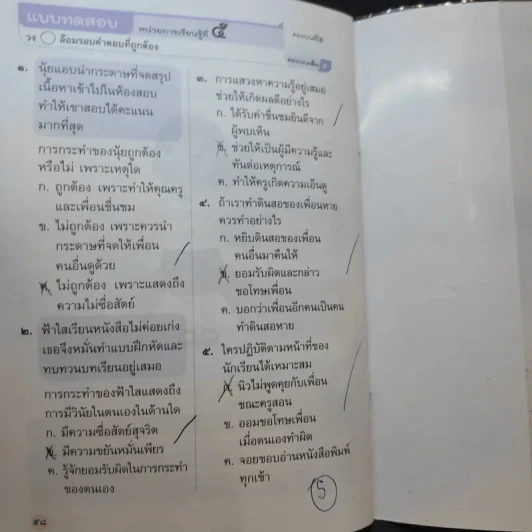 แบบทดสอบ
หน่วยการเรียนรู้ที่ ๕
วง ล้อมรอบคำตอบที่ถูกต้อง
คะแนนเต็ม ๕
๑. นุ้ยแอบนำกระดาษที่จดสรุป
เนื้อหาเข้าไปในห้องสอบ
ทำให้เขาสอบได้คะแนน
มากที่สุด
การกระทำของนุ้ยถูกต้อง
หรือไม่ เพราะเหตุใด
ก. ถูกต้อง เพราะทำให้คุณครู
และเพื่อนชื่นชม
ข. ไม่ถูกต้อง เพราะควรนำ
กระดาษที่จดให้เพื่อน
คนอื่นดูด้วย
ค. ไม่ถูกต้อง เพราะแสดงถึง
ความไม่ซื่อสัตย์
๒. ฟ้าใสเรียนหนังสือไม่ค่อยเก่ง
เธอจึงหมั่นทำแบบฝึกหัดและ
ทบทวนบทเรียนอยู่เสมอ
การกระทำของฟ้าใสแสดงถึง
การมีวินัยในตนเองในด้านใด
ก. มีความซื่อสัตย์สุจริต
ข. มีความขยันหมั่นเพียร
ค. รู้จักยอมรับผิดในการกระทำ
ของตนเอง
๕๘
๓. การแสวงหาความรู้อยู่เสมอ
ช่วยให้เกิดผลดีอย่างไร
ก. ได้รับคำชื่นชมยินดีจาก
ผู้พบเห็น
ข. ช่วยให้เป็นผู้มีความรู้และ
ทันต่อเหตุการณ์
ค. ทำให้ครูเกิดความเอ็นดู
๔. ถ้าเราทำดินสอของเพื่อนหาย
ควรทำอย่างไร
ก. หยิบดินสอของเพื่อน
คนอื่นมาคืนให้
ข. ยอมรับผิดและกล่าว
ขอโทษเพื่อน
ค. บอกว่าเพื่อนอีกคนเป็นคน
ทำดินสอหาย
๕. ใครปฏิบัติตามหน้าที่ของ
นักเรียนได้เหมาะสม
ก. นิวไม่พูดคุยกับเพื่อน
ขณะครูสอน
ข. ออมขอโทษเพื่อน
เมื่อตนเองทำผิด
ค. จอยชอบอ่านหนังสือพิมพ์
ทุกเช้า
5